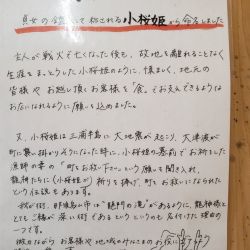 貞女の鏡として称される小桜姫から命名しました
主人が戦火で亡くなった後も、故地を離れることなく
生涯をまっとうした小桜姫のように、懐しく、地元の
皆様やお越し頂くお客様を「食」でおささえできるようは
お店になれるように願いを込めました。
又、小桜姫は三浦半島に大地震が起こり、大津波が
町に襲い掛かりそうになった時に、小桜姫の墓前でお祈りした
漁師の妻の「町をお救い下さい」という願いを聞き入れ、
龍神にたちに(小桜姫が)祈りを捧げ、町をお救いになられた
という伝説もあります。
我が街、明嵐山市に「龍門の滝」があるように、龍神様と
とてもご縁が深い街であるということも名付けた理由の
一つです。
微力ながらお客様や地域のみなさまのお役に